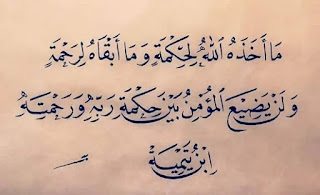 مَا أَخَذَهُ اللهُ لِحِكْمَةٍ وَمَا أَبْقَاهُ لِرَحْمَةٍ
وَلَنْ يَضِيعَ الْمُؤْمِنُ بَيْنَ حِكْمَةِ رَبِّهِ وَرَحْمَتِهِ
ابْنُ تَيْمِيَّة